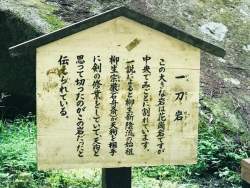 一刀岩
この大きな岩は花崗岩ですが
中央でみごとに割れています。
一説によると柳生新陰流の始祖
柳生宗厳石舟斎が天狗を相手
に剣の修業をしていて天狗と
思って切ったのがこの岩だったと
伝えられている。